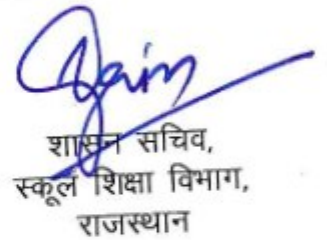 शासन सचिव,
स्कूल शिक्षा विभाग,
राजस्थान